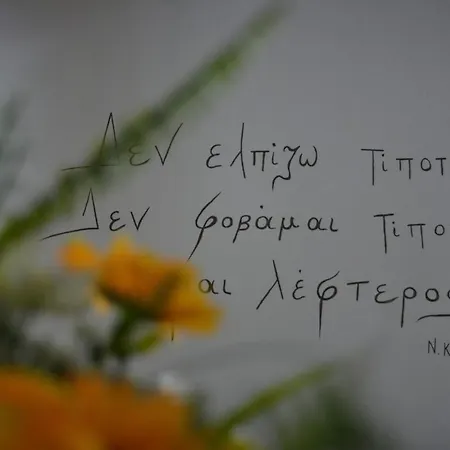 Δεν ελπίζω τίποτ
Δεν φοβάμαι τίπο
αι λέφτερος
Ν.Κ